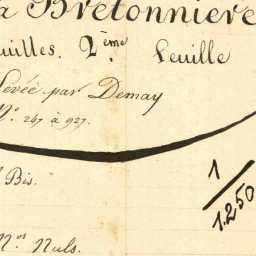 a Bretonnière
uilles. 2ème feuille
Levée par Demay
Nos 247 à 927.
Bis.
1
1250
Nos Nuls.